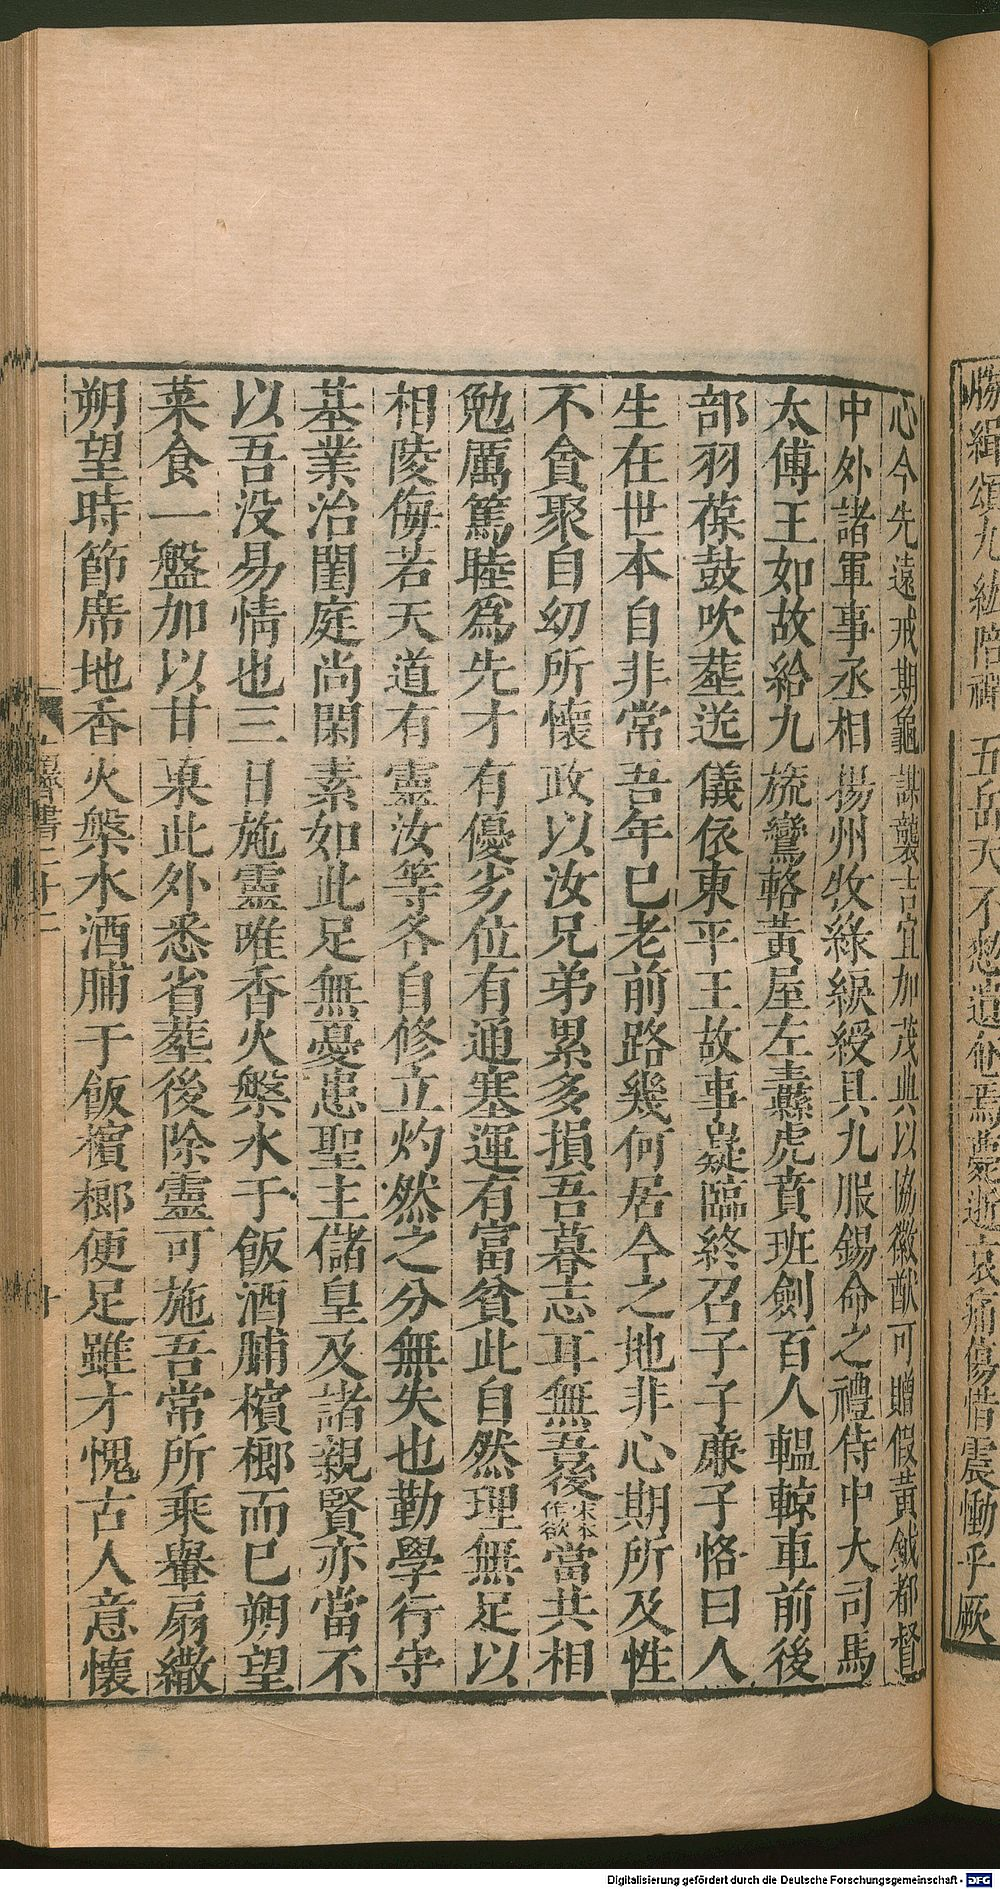 勝緝頌九紘陪禪五岳天不憖遺奄焉薨逝哀痛傷惜震慟乎厥
心今先遠戒期龜謀襲吉宜加茂典以協徽猷可贈假黃鉞都督
中外諸軍事丞相揚州牧綠綟綬具九服錫命之禮侍中大司馬
太傅王如故給九旒鸞輅黃屋左纛虎賁班劍百人轀輬車前後
部羽葆鼓吹葬送儀依東平王故事嶷臨終召子子廉子恪曰人
生在世本自非常吾年已老前路幾何居今之地非心期所及性
不貪聚自幼所懷政以汝兄弟累多損吾暮志耳無吾後宋本作欲當共相
勉厲篤睦爲先才有優劣位有通塞運有富貧此自然理無足以
相陵侮若天道有靈汝等各自修立灼然之分無失也勤學行守
基業治閨庭尚閑素如此足無憂患聖主儲皇及諸親賢亦當不
以吾没易情也三日施靈唯香火槃水干飯酒脯檳榔而已朔望
菜食一盤加以甘菓此外悉省葬後除靈可施吾常所乘轝扇繖
朔望時節席地香火槃水酒脯干飯檳榔便足雖才愧古人意懷
南齊書二十二
十
Digitalisierung gefördert durch die Deutsche Forschungsgemeinschaft - DFG